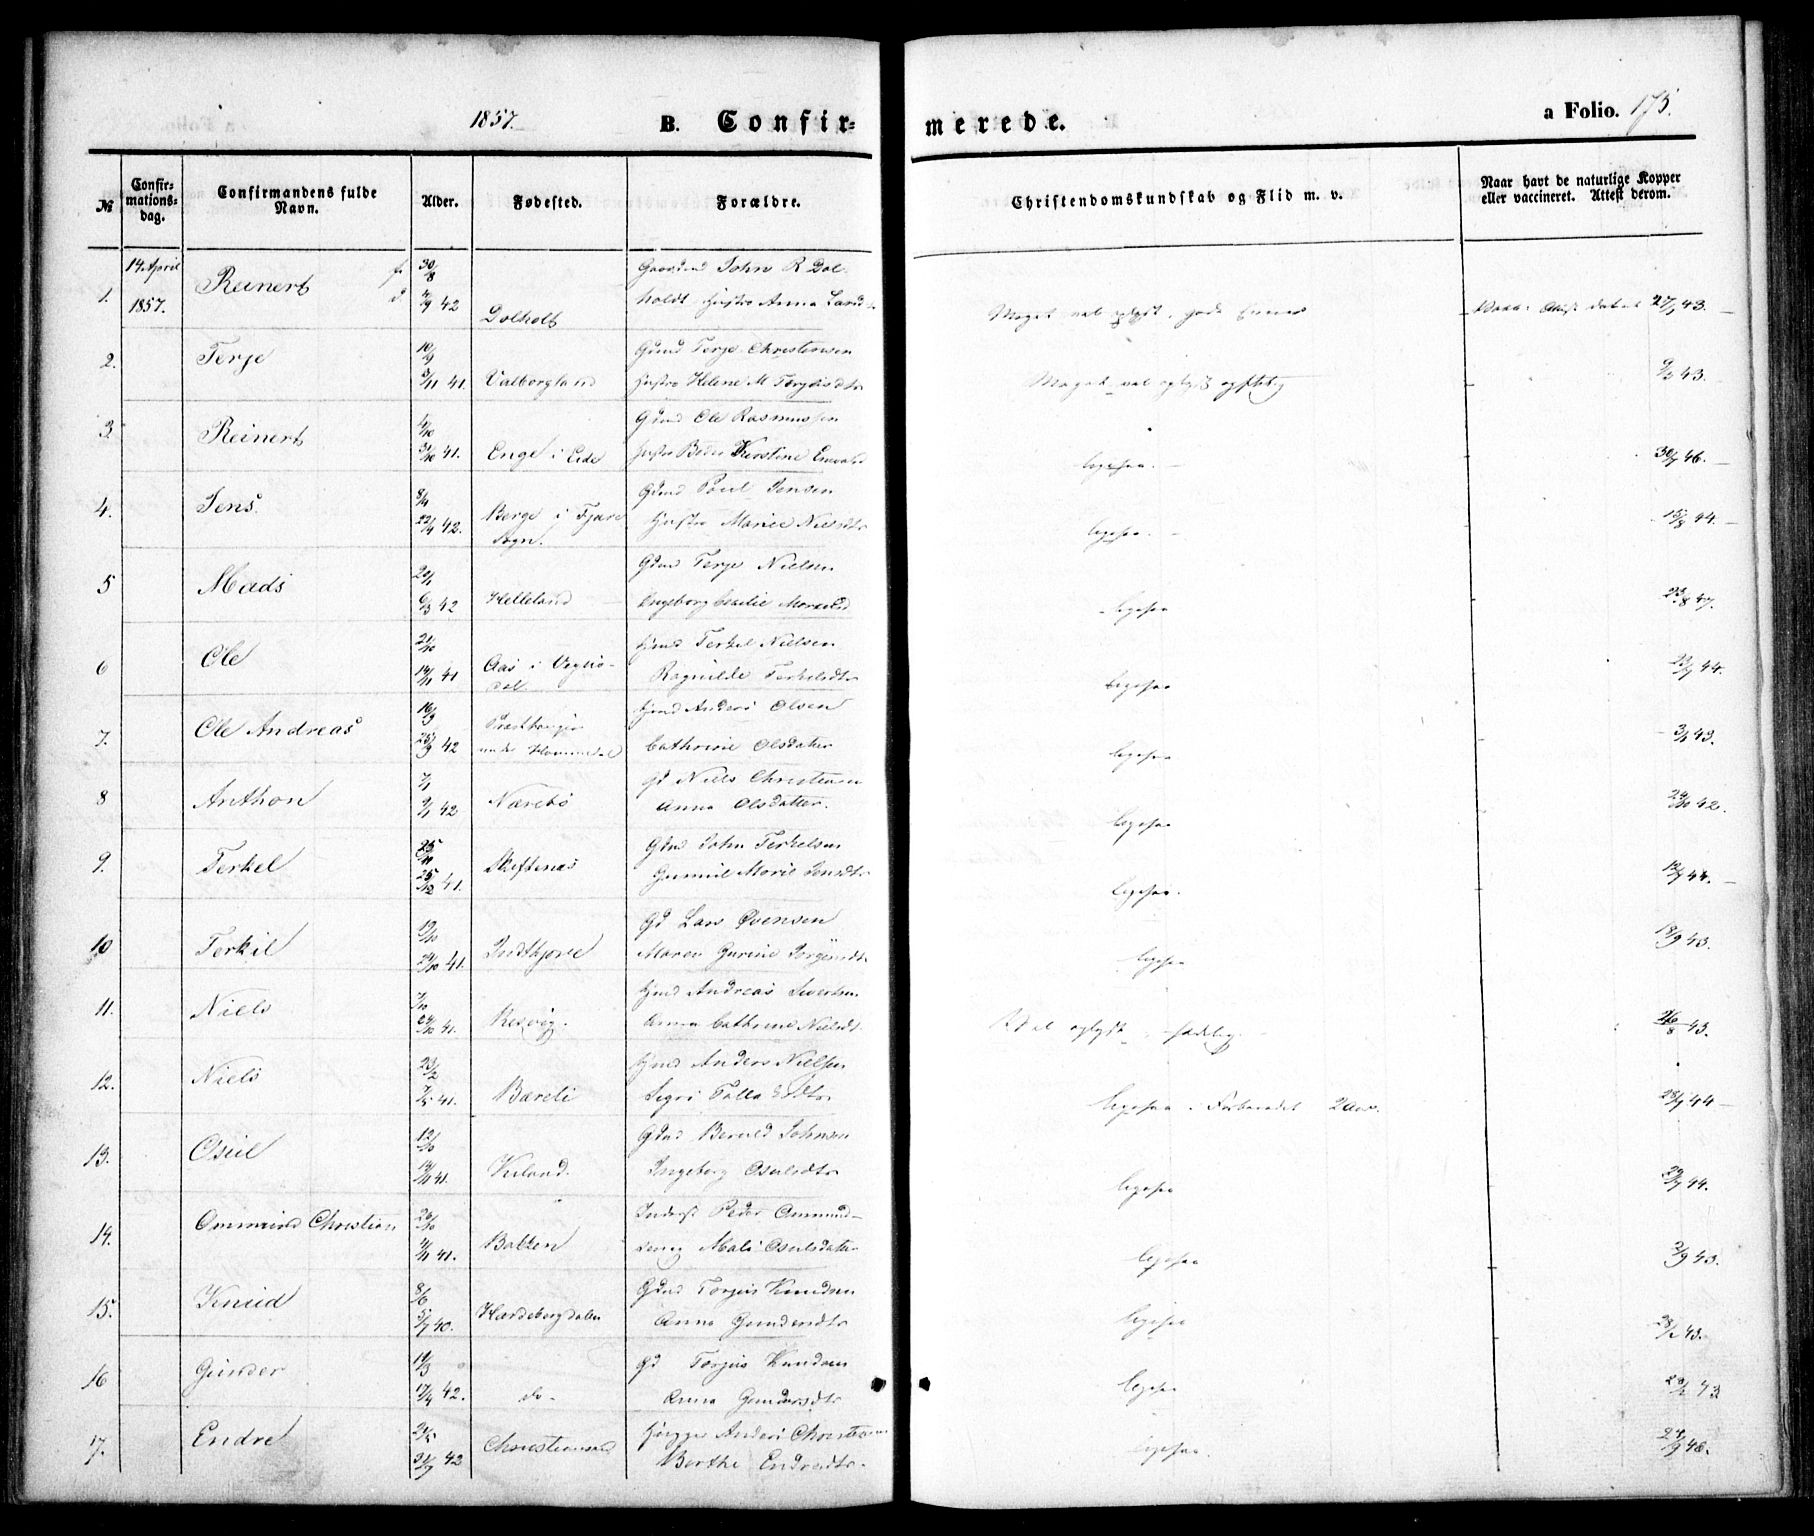 1857.
B. Confir-
merede.
a Folio. 175.
№
Confir-
mations-
dag.
Confirmandens fulde
Navn.
Alder.
Fødested.
Forældre.
Christendomskundskab og Flid m. v.
Naar havt de naturlige Kopper
eller vaccineret. Attest derom.
14 April
1857.
1. Reinert f 30/8 d 4/9 42 Dolholt
Gaardmd John R Dol-
holdt Hustro Anna Lard
Meget vel oplyst. gode Evner
27/1 43.
2. Terje 10/9 3/11 41. Valborgland
Gmd Terje Christensen
Hustro Helene M Terjesdtr
Meget vel oplyst
9/2 43.
3. Reinert 4/10 31/10 41. Enge i Eide
Gmd Ole Rasmussen
Kirstine
ligesaa. 30/7 46.
4. Jens 8/4 22/4 42. Berge i Fjære
Sogn.
Gdmd Poul Jensen
Hustro Maria Nielsdtr
ligesaa. 15/8 44.
5 Mads 20/1 6/3 42 Helleland
Gdmd Terje Nielsen
Ingeborg Cecilie
ligesaa 23/8 47.
6 Ole 21/10 14/11 41 Aas i Vegus-
dal
Hmd Terkel Nielsen
Ragnilde Terkelsdtr
ligesaa 22/7 44.
7. Ole Andreas 16/9 25/9 42
Hmd Anders Olsen
Cathrine Olsdatter
ligesaa 3/1 43.
8 Anthon 7/1 9/1 42 Narebø
gd Niels Christensen
Anna Olsdatter.
ligesaa 24/10 42.
9. Terkel 25/11 25/12 41. Skiftenes
Gdmd John Terkelsen
Gunnil Marie Jensdtr
ligesaa. 12/7 44.
10 Terkil 19/10 24/10 41.
Gd Lars Evensen
Maren Gurine Jørgensdtr
ligesaa 18/9 43.
11. Niels 7/10 24/10 41. Resvig.
Hmd Andreas Sivertsen
Anna Cathrine Nielsdtr
Vel oplyst. sædelig. 26/8 43.
12. Niels 23/2 7/5 41. Bareli
Hmd Anders Nielsen
Sigri
ligesaa. Forberedet 2 Aar. 28/7 44
13. Osuel 12/10 14/11 41. Kiland.
Gdmd Beruld Johnsen
Ingeborg Osulsdtr
ligesaa 29/7 44.
14. Ommund Christian 26/10 4/11 41. Bolten
Inderst Peder Ommund-
sen og Mali Osulsdatter
ligesaa 2/9 43.
15. Knud 8/6 5/7 40. Hardebergdalen
Gdmd Torjus Knudsen
Anna Gundersdtr
ligesaa 28/2 43.
16 Gunder 19/3 17/4 42. do-
Gd Torjus Knudsen
Anna Gundersdtr
ligesaa 20/2 43
17. Endre 24/5 21/9 42 Christiansand
Anders Christensen
Berthe Endresdtr.
ligesaa. 24/9 48.